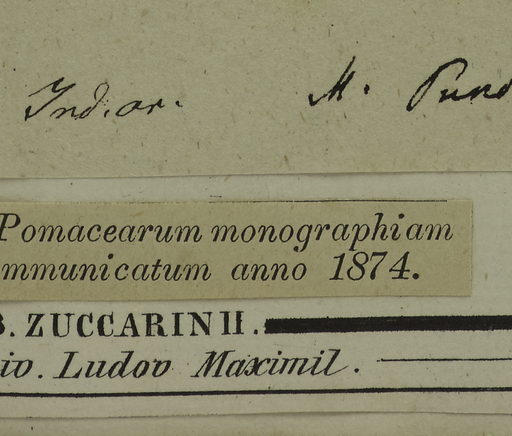 Ind. or. M. Pund
Pomacearum monographiam
mmunicatum anno 1874.
B. ZUCCARINII.
iv. Ludov Maximil.